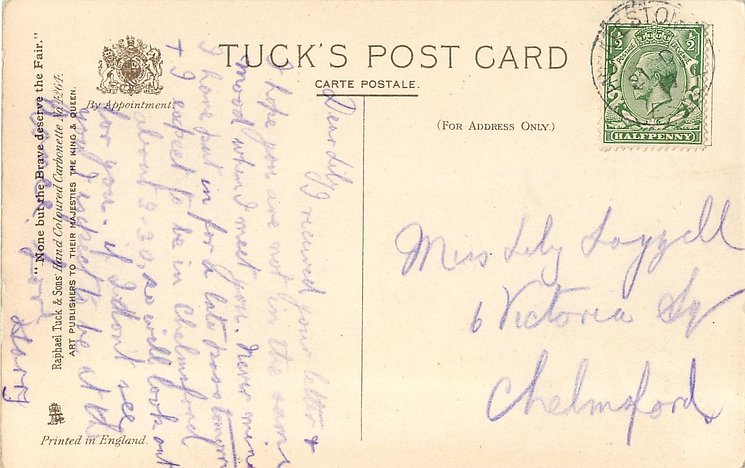 TUCK'S POST CARD
CARTE POSTALE.
(FOR ADDRESS ONLY.)
By Appointment.
"None but the Brave deserve the Fair."
Raphael Tuck & Sons' Hand Coloured Carbonette No 4264.
ART PUBLISHERS TO THEIR MAJESTIES THE KING & QUEEN.
Printed in England.
½ ½
HALFPENNY
Dear Lily I received your letter &
I hope you are not in the same
mood when I meet you. Never mind
I have put in for a late pass
& I expect to be in Chelmsford
about 3-30, so will look out
for you. if I dont see
you I expect to be at the
Harry
Miss Lily
6 Victoria Sq
Chelmsford